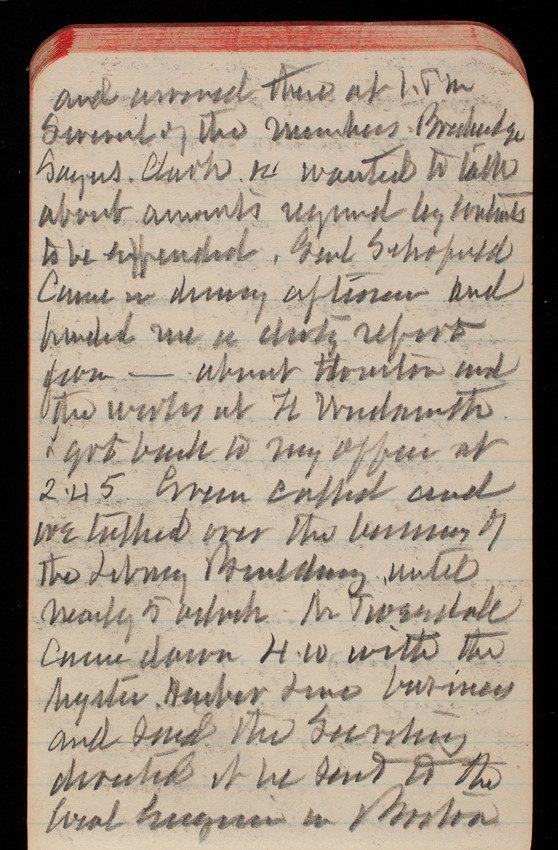 and arrived there at 1. P m
Several of the members. Breckridge
Sayers. Clark. &c wanted to talk
about amounts required by contracts
to be expended. Genl Schofield
Came in during afternoon and
handed me a dirty report
from — about Houston and
the works at Ft Wadsworth.
I got back to my office at
2.45 Green called and
we talked over the business of
the Library Building until
nearly 5 oclock. Mr Tweerdale
Came down 4.10 with the
Harbor Line business
and said the Secretary
directed it be sent to the
local Engineer in Boston